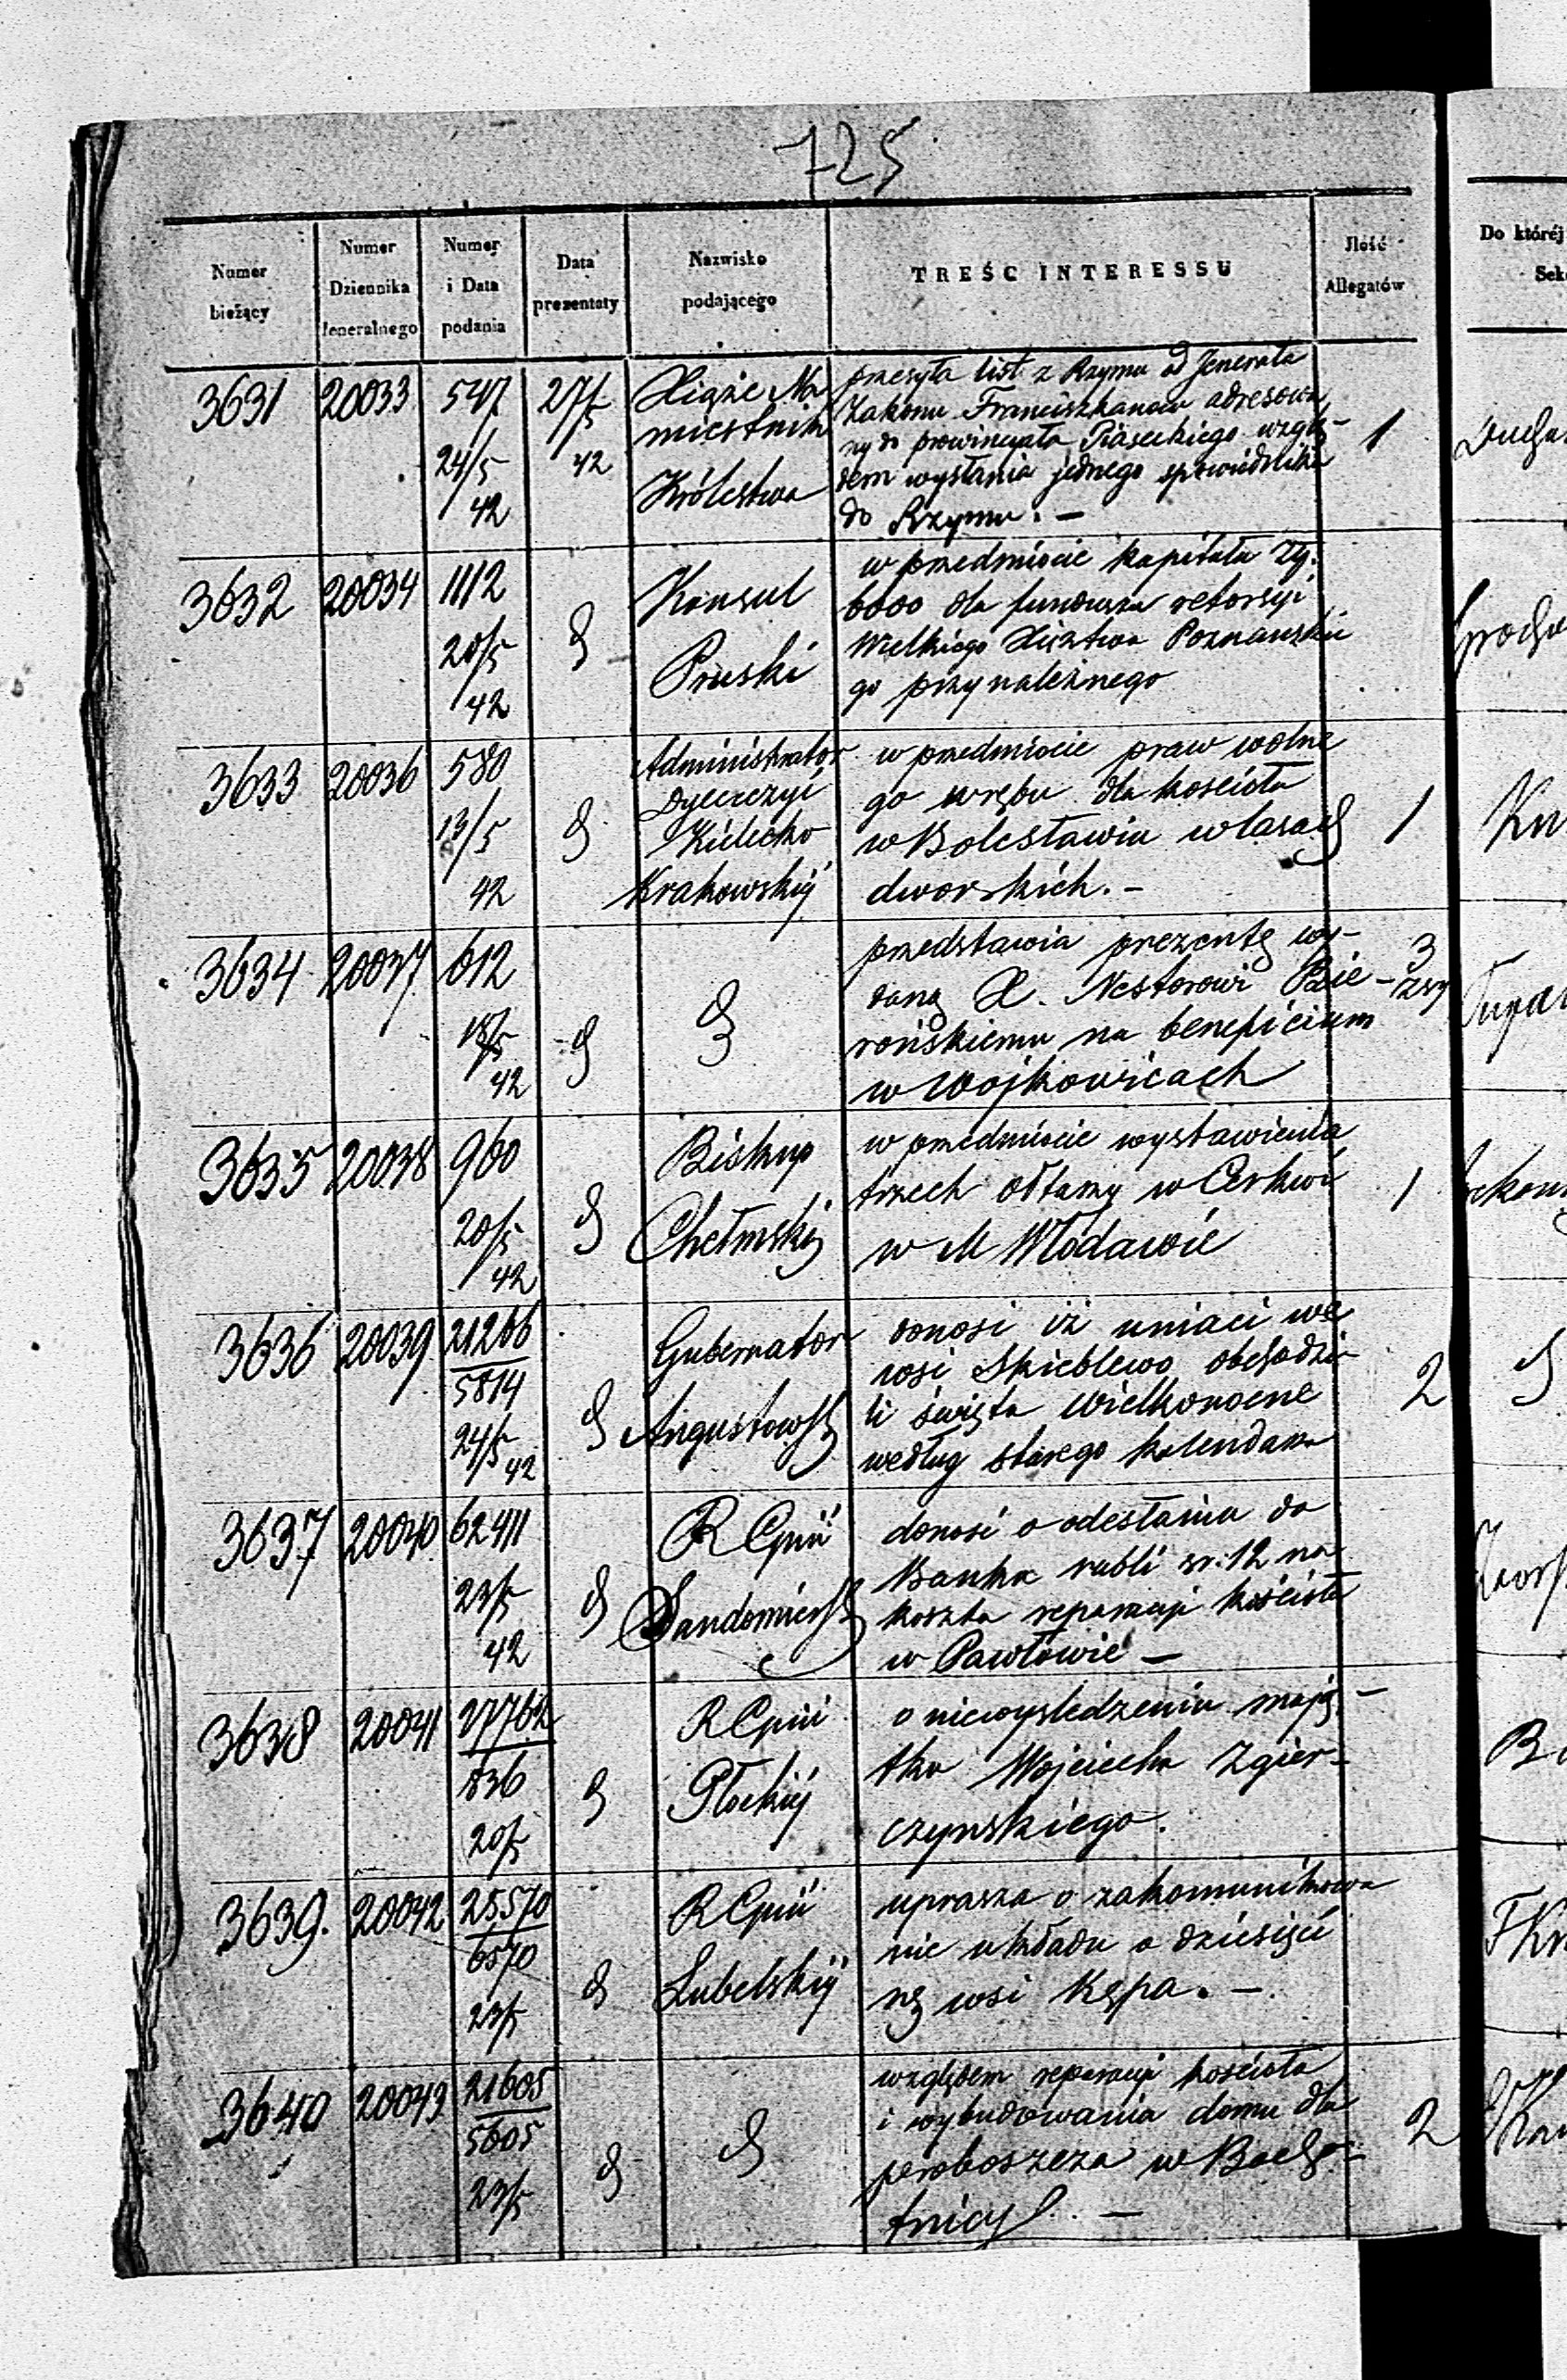 725
Numer bieżący
Numer Dziennika Jeneralnego
Numer i Data podania
Data prezentaty
Nazwisko podającego
TREŚC INTERESSU
Jlość Allegatów
Do któréj
Sek
3631 20033 547 24/5 42 27/5 42
Xiąże Na
miestnik
Królestwa
przesyła list z Rzymu od Jenerała
Zakonu Franciszkanow adresowa
ny do prowincyała Piaseckiego wzglę-
dem wysłania jednego spowiednika
do Rzymu. —
1
3632 20034 1112 20/5 42
Konsul
Pruski
w przedmiocie kapitału Zł:
6000 dla funduszu retorsyi
Wielkiego Xięztwa Poznanskie
go przynależnego
3633 20036 580 13/5 42
Administrator
Dyecezyi
Kielecko
Krakowskiij
w przedmiocie praw wolne
go wrębu dla kościoła
w Bolesławiu w lasach
dworskich. —
1
3634 20037 612 18/5 42
przedstawia prezentę wy-
daną X. Nestorowi Bie-
rońskiemu na beneficium
w Wojkowicach
3
3635 20038 960 20/5 42
Biskup
Chełmski
w przedmiocie wystawienia
trzech ołtarzy w Cerkwi
w M Włodawie
1
3636 20039 21266 5814 24/5 42
Gubernator
Augustows
donosi iż uniaci we
wsi Skieblewo obchodzi-
li święta Wielkonocne
według starego kalendarza
2
3637 20040 62411 23/5 42
R Gpiii
Sandomiers
donosi o odesłaniu do
Banku rubli sr. 12 na
koszta reparacyi kościoła
w Pawłowie —
3638 20041 27762 836 20/5
R Gpiii
Płockiij
o niewysledzeniu mają-
tku Wojciecha Zgier-
czynskiego.
3639. 20042 25570 6570 23/5
R Gpiii
Lubelskiij
uprasza o zakomunikowa
nie układu o dziesięci
nę wsi Kępa. —
3640 20043 21605 5605 23/5
względem reparacyi kościoła
i wybudowania domu dla
proboszcza w Bocho-
tnicy. —
2